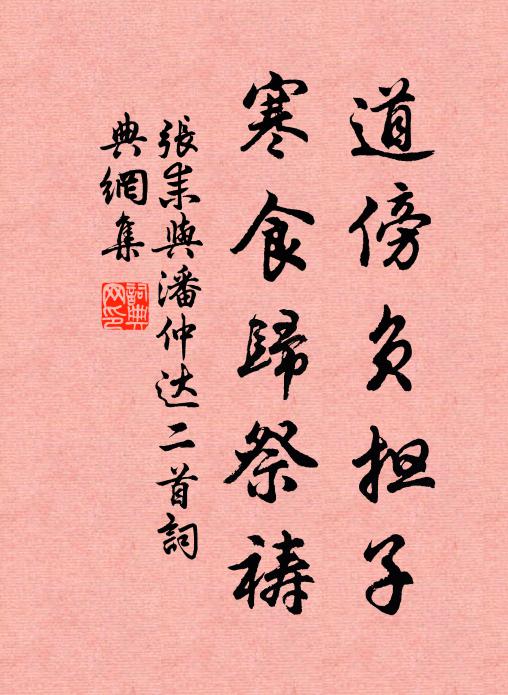 道傍负担子
寒食歸祭祷
張耒與潘仲达二首詞
典網集
詞典
网印